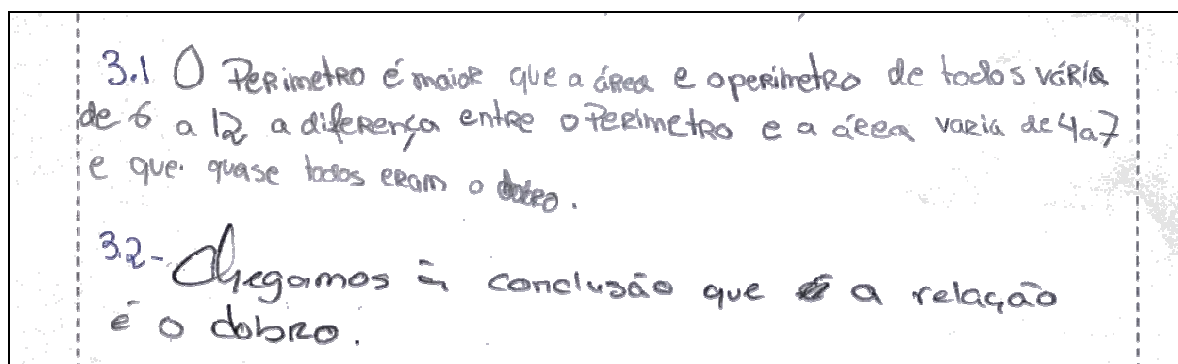 3.1 O Perimetro é maior que a área e operimetro de todos vária
de 6 a 12 a diferença entre o Perimetro e a área varia de 4 a 7
e que. quase todos eram o dobro.
3.2- Chegamos à conclusão que a relação
é o dobro.